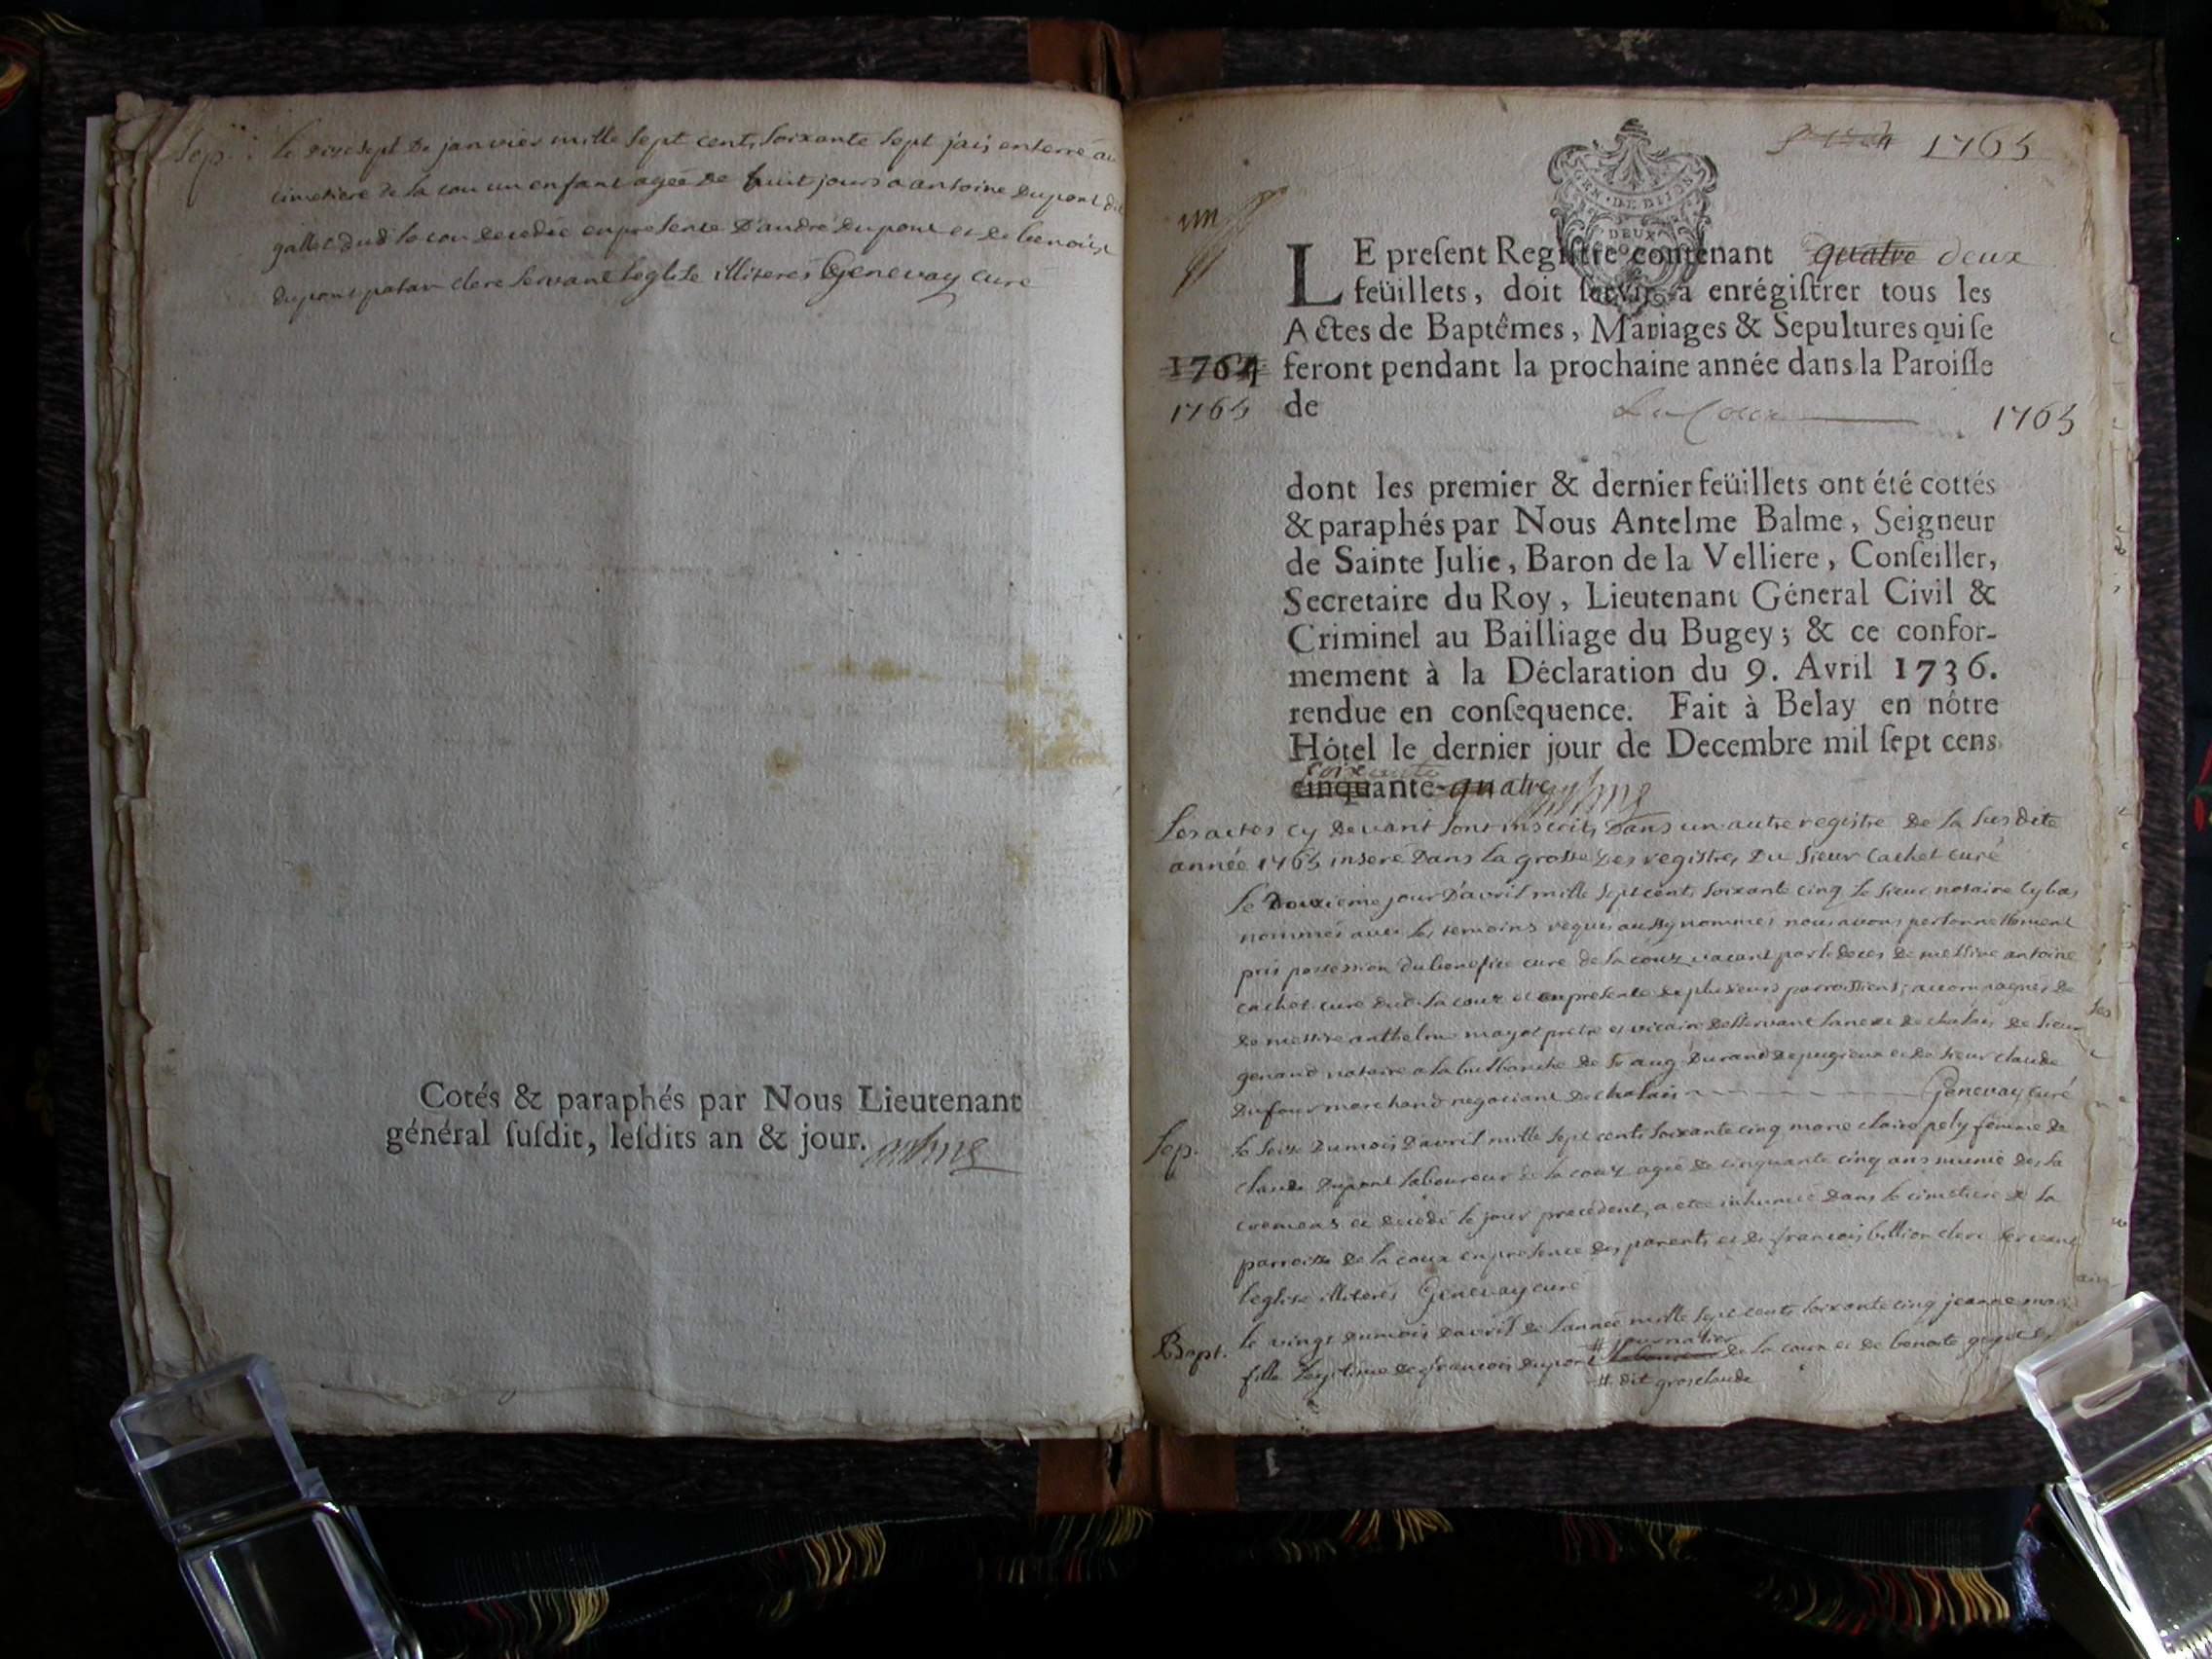 Sep. : le dixsept de janvier mille sept cents soixante sept j'ais enterré au
cimetiere de la cou un enfant agée de huit jours a antoine dupont dit
gallet dud. la cou decedée en presence d'andré dupont et de benoist
dupont patan clerc servant l'eglise illiteres Genevay curé
Cotés & paraphés par Nous Lieutenant
général ſuſdit, leſdits an & jour.
1765
GEN · DE DIJON
DEUX
un
LE preſent Regiſtre contenant quatre deux
feüillets, doit ſervir à enrégiſtrer tous les
Actes de Baptêmes, Mariages & Sepultures qui ſe
1764 feront pendant la prochaine année dans la Paroiſſe
1765 de La Coux 1765
dont les premier & dernier feüillets ont été cottés
& paraphés par Nous Antelme Balme, Seigneur
de Sainte Julie, Baron de la Velliere, Conſeiller,
Secretaire du Roy, Lieutenant Géneral Civil &
Criminel au Bailliage du Bugey; & ce confor-
mement à la Déclaration du 9. Avril 1736.
rendue en conſequence. Fait à Belay en nôtre
Hôtel le dernier jour de Decembre mil ſept cens
soixante
cinquante-quatre
Les actes cy devant sont inscrits dans un autre registre de la susdite
année 1765 inseré dans la grosse des registres du sieur Cachet curé
le douzieme jour d'avril mille sept cents soixante cinq le sieur notaire cy bas
nommés avec les temoins requis aussy nommes nous avons personnellement
pris possession du benefice cure de la coux vacant par le deces de messire antoine
cachet curé dud. la coux et en presence de plusieurs parroissiens, accompagnés de
de messire anthelme mayot pretre et vicaire desservant l'anexe de chalais de sieur
genand notaire a la durand de pugieux et de sieur claude
dufour marchand negociant de chalais Genevay curé
Sep. le seize du mois d'avril mille sept cents soixante cinq marie claire pely femme de
claude dupont laboureur de la coux agée de cinquante cinq ans munie des sa
cremens et decedé le jour precedent, a etée inhumée dans le cimetiere de la
parroisse de la coux en presence des parents et de francois billion clerc servant
l'eglise illiterés Genevay curé
Bapt. le vingt du mois d'avril de l'année mille sept cents soixante cinq jeanne marie
# journalier
fille legitime de francois dupont laboureur de la coux et de benoite
# dit grosclaude